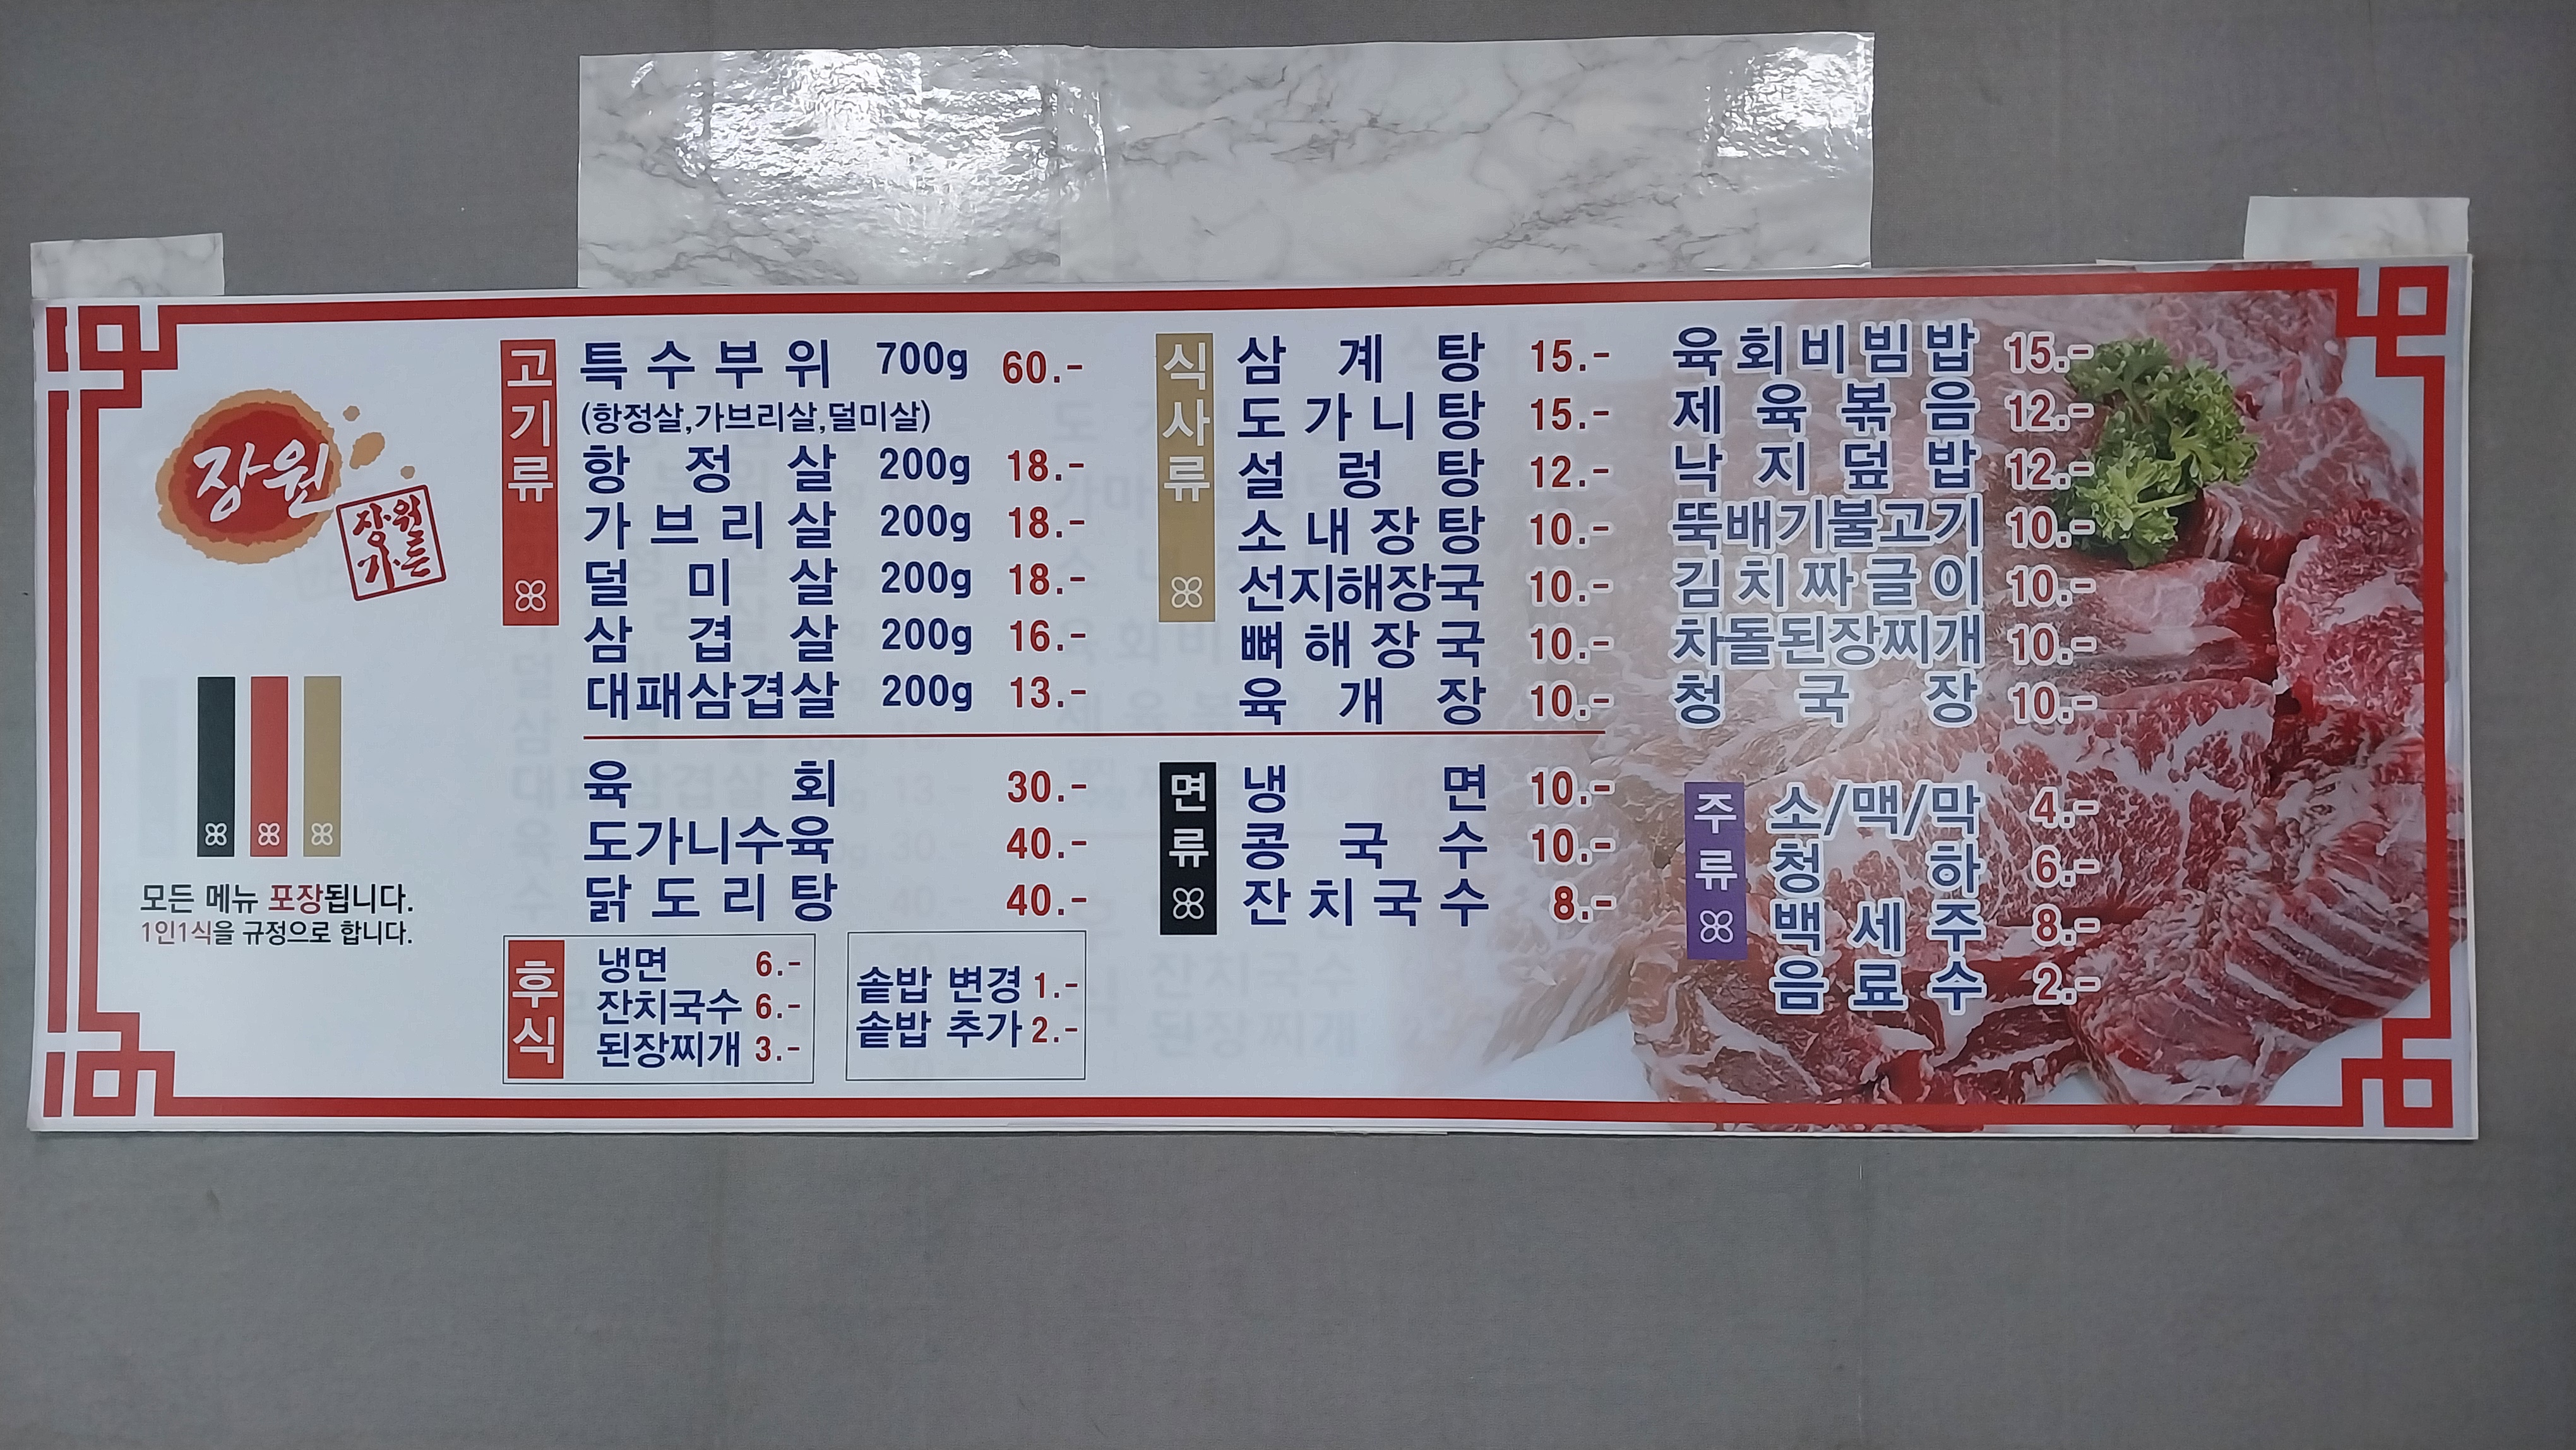 장원
장원
가든
모든 메뉴 포장됩니다.
1인1식을 규정으로 합니다.
고기류
특수부위 700g 60.-
(항정살,가브리살,덜미살)
항정살 200g 18.-
가브리살 200g 18.-
덜미살 200g 18.-
삼겹살 200g 16.-
대패삼겹살 200g 13.-
육회 30.-
도가니수육 40.-
닭도리탕 40.-
후식
냉면 6.-
잔치국수 6.-
된장찌개 3.-
솥밥 변경 1.-
솥밥 추가 2.-
식사류
삼계탕 15.-
도가니탕 15.-
설렁탕 12.-
소내장탕 10.-
선지해장국 10.-
뼈해장국 10.-
육개장 10.-
면류
냉면 10.-
콩국수 10.-
잔치국수 8.-
육회비빔밥 15.-
제육볶음 12.-
낙지덮밥 12.-
뚝배기불고기 10.-
김치짜글이 10.-
차돌된장찌개 10.-
청국장 10.-
주류
소/맥/막 4.-
청하 6.-
백세주 8.-
음료수 2.-